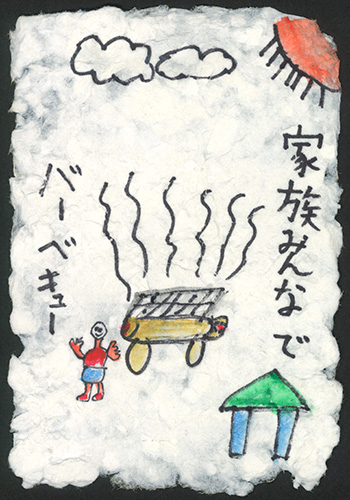 家族みんなで
バーベキュー